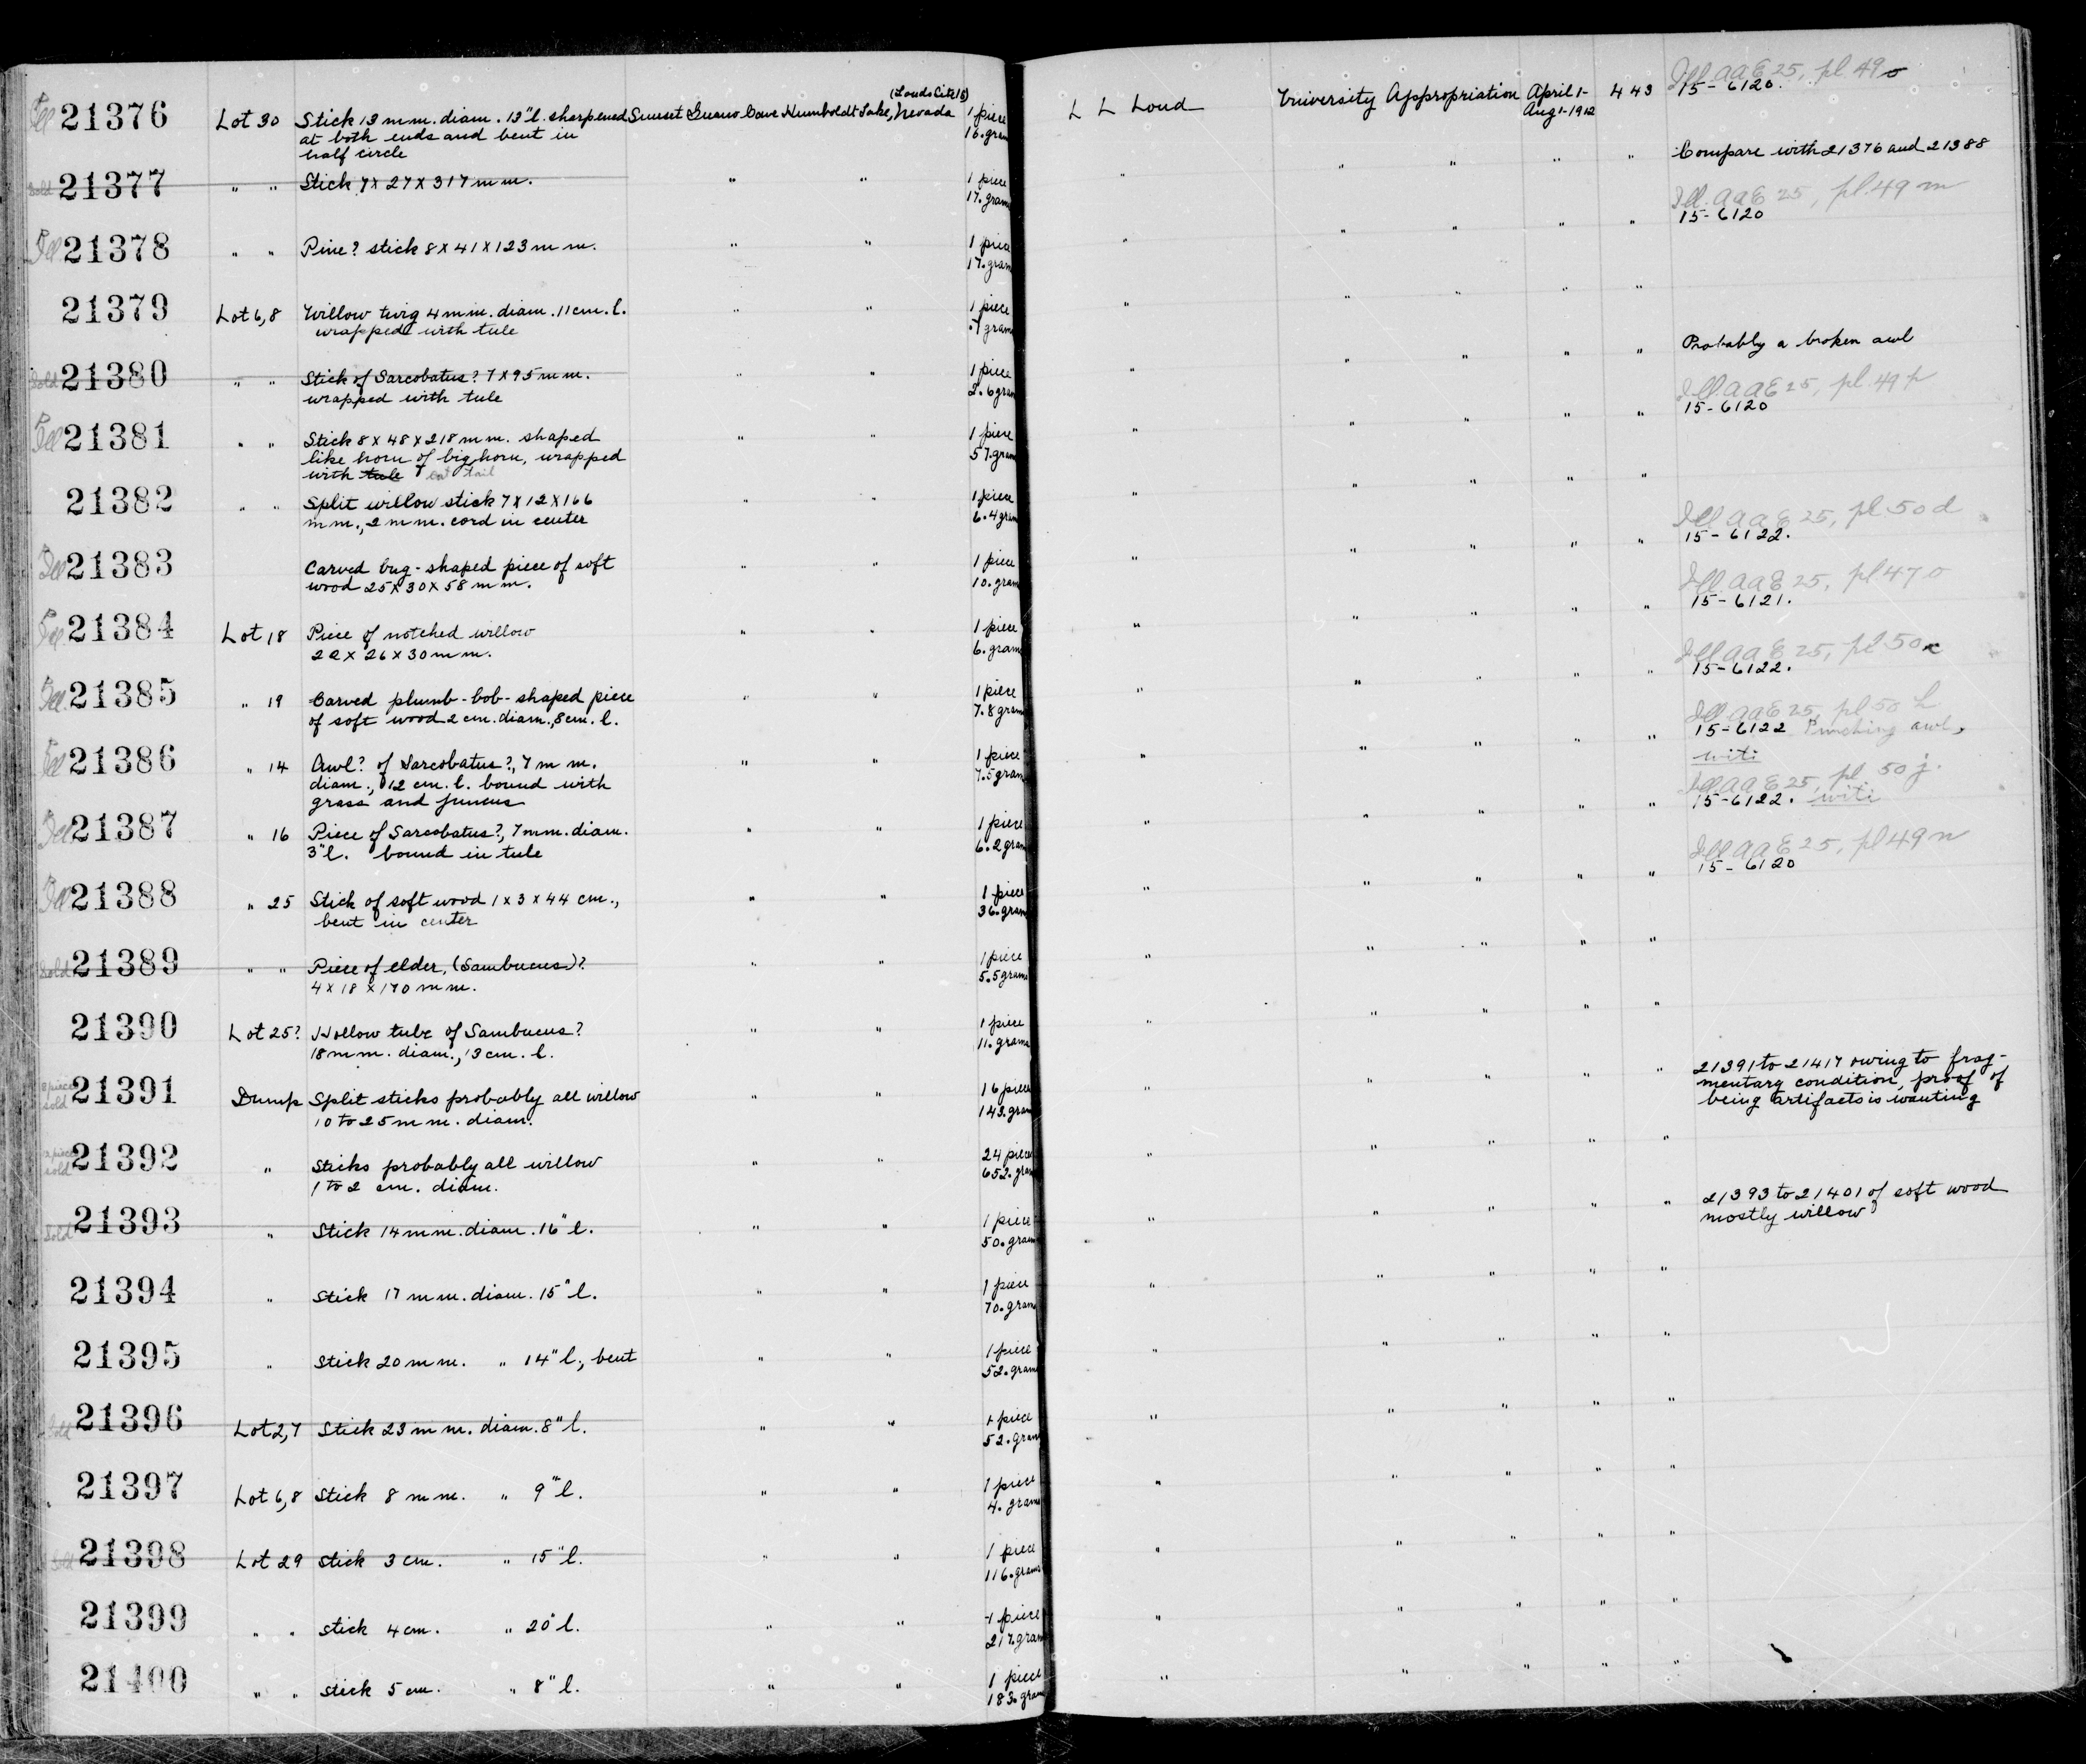 (Louds Site 15)
Ill 21376 Lot 30 Stick 13 mm. diam. 13" l. sharpened Sunset Guano Cave Humboldt Lake, Nevada 1 piece L L Loud University Appropriation April 1- 443 Ill. AAE 25, pl. 49 o
at both ends and bent in 16. gram Aug 1-1912 15-6120.
half circle
Sold 21377 " " Stick 7 x 27 x 317 mm. " " 1 piece " " " " " Compare with 21376 and 21388
17. gram
Ill 21378 " " Pine? stick 8 x 41 x 123 mm. " " 1 piece " " " " " Ill. AAE 25, pl. 49 m
17. gram 15-6120
21379 Lot 6,8 Willow twig 4 mm. diam. 11 cm. l. " " 1 piece " " " " "
wrapped with tule .7 gram
Sold 21380 " " Stick of Sarcobatus? 7 x 95 mm. " " 1 piece " " " " " Probably a broken awl
wrapped with tule 2.6 gram
Ill 21381 " " Stick 8 x 48 x 218 mm. shaped " " 1 piece " " " " " Ill. AAE 25, pl. 49 p
like horn of big horn, wrapped 57. gram 15-6120
with tule cat tail
21382 " " Split willow stick 7 x 12 x 166 " " 1 piece " " " " "
mm., 2 mm. cord in center 6.4 gram
Ill 21383 Carved bug-shaped piece of soft " " 1 piece " " " " " Ill AAE 25, pl 50 d
wood 25 x 30 x 58 mm. 10. gram 15-6122.
Ill 21384 Lot 18 Piece of notched willow " " 1 piece " " " " " Ill. AAE 25, pl 47 o
22 x 26 x 30 mm. 6. gram 15-6121.
Ill. 21385 " 19 Carved plumb-bob-shaped piece " " 1 piece " " " " " Ill AAE 25, pl 50 c
of soft wood 2 cm. diam., 8 cm. l. 7.8 gram 15-6122.
Ill 21386 " 14 Awl? of Sarcobatus?, 7 mm. " " 1 piece " " " " " Ill AAE 25, pl 50 h
diam., 12 cm. l. bound with 7.5 gram 15-6122 Punching awl,
grass and juncus witi
Ill 21387 " 16 Piece of Sarcobatus?, 7 mm. diam. " " 1 piece " " " " " Ill AAE 25, pl. 50 j.
3" l. bound in tule 6.2 gram 15-6122. witi
Ill 21388 " 25 Stick of soft wood 1 x 3 x 44 cm., " " 1 piece " " " " " Ill AAE 25, pl 49 n
bent in center 36. gram 15-6120
Sold 21389 " " Piece of elder, (Sambucus)? " " 1 piece " " " " "
4 x 18 x 170 mm. 5.5 grams
21390 Lot 25? Hollow tube of Sambucus? " " 1 piece " " " " "
18 mm. diam., 13 cm. l. 11. grams
sold 21391 Dump Split sticks probably all willow " " 16 piece " " " " " 21391 to 21417 owing to frag-
10 to 25 mm. diam. 143. gram mentary condition, proof of
being artifacts is wanting
sold 21392 " Sticks probably all willow " " 24 piece " " " " "
1 to 2 cm. diam. 652. gram
Sold 21393 " Stick 14 mm. diam. 16" l. " " 1 piece " " " " " 21393 to 21401 of soft wood
50. gram mostly willow
21394 " Stick 17 mm. diam. 15" l. " " 1 piece " " " " "
70. gram
21395 " Stick 20 mm. " 14" l., bent " " 1 piece " " " " "
52. gram
Sold 21396 Lot 2,7 Stick 23 mm. diam. 8" l. " " 1 piece " " " " "
52. gram
21397 Lot 6,8 Stick 8 mm. " 9" l. " " 1 piece " " " " "
4. gram
Sold 21398 Lot 29 Stick 3 cm. " 15" l. " " 1 piece " " " " "
116. grams
21399 " " Stick 4 cm. " 20" l. " " 1 piece " " " " "
217. gram
21400 " " Stick 5 cm. " 8" l. " " 1 piece " " " " "
183. gram